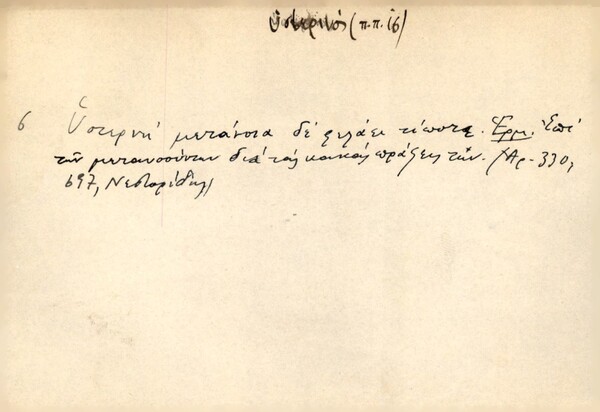 ὑστερινός (π.π. 16)
6 Ὑστερνή μετάνοια δέ φελάει τίποτα. Ἑρμ. Ἐπί
τῶν μετανοούντων διά τάς κακάς πράξεις των. (Ἀρ. 330,
697, Νεστορίδης)